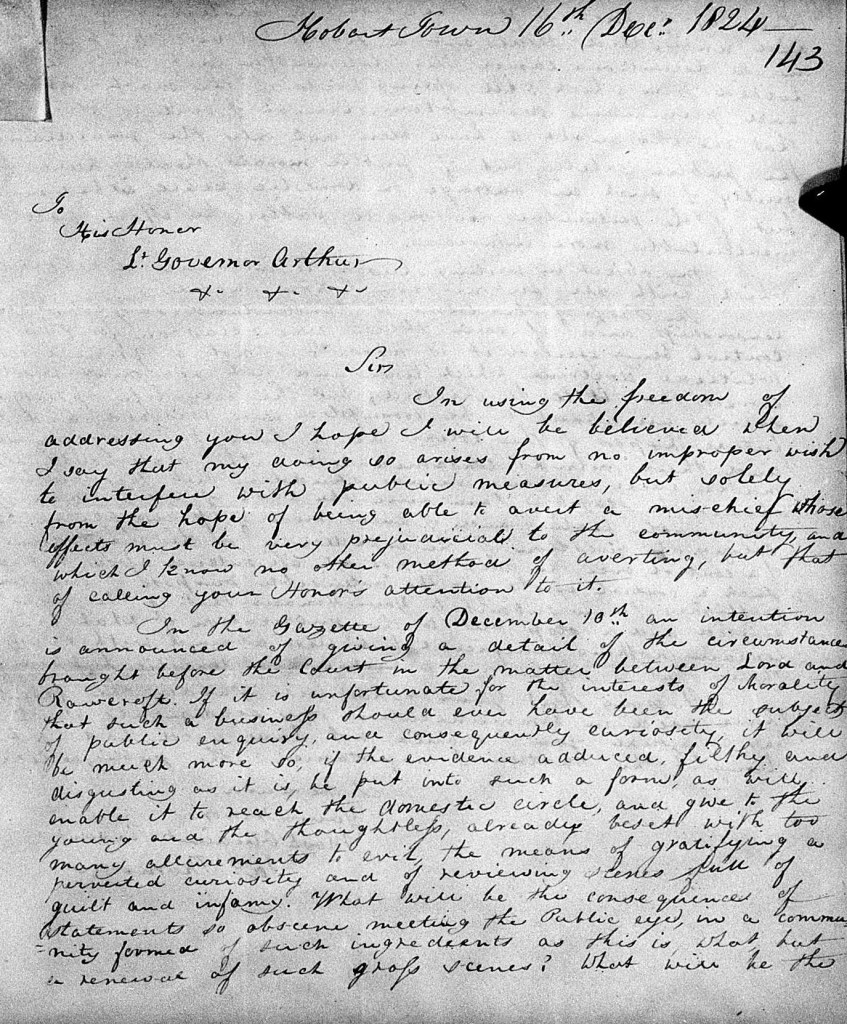 Hobart Town 16th Decr. 1824
143
To
His Honor
Lt. Governor Arthur
Sir
In using the freedom of
addressing you I hope I will be believed when
I say that my doing so arises from no improper wish
to interfere with public measures, but solely
from the hope of being able to avert a mischief whose
effects must be very prejudicial to the community, and
which I know no other method of averting, but that
of calling your Honor's attention to it.
In the Gazette of December 10th an intention
is announced of giving a detail of the circumstances
brought before the Court in the matter between Lord and
Rowcroft. If it is unfortunate for the interests of Morality
that such a business should ever have been the subject
of public enquiry, and consequently curiosity, it will
be much more so, if the evidence adduced, filthy and
disgusting as it is, be put into such a form, as will
enable it to reach the domestic circle, and give to the
young and the thoughtless, already beset with too
many allurements to evil, the means of gratifying a
perverted curiosity and of reviewing scenes full of
guilt and infamy. What will be the consequences of
statements so obscene meeting the Public eye, in a commu-
=nity formed of such ingredients as this is, what but
a renewal of such gross scenes? What will be the